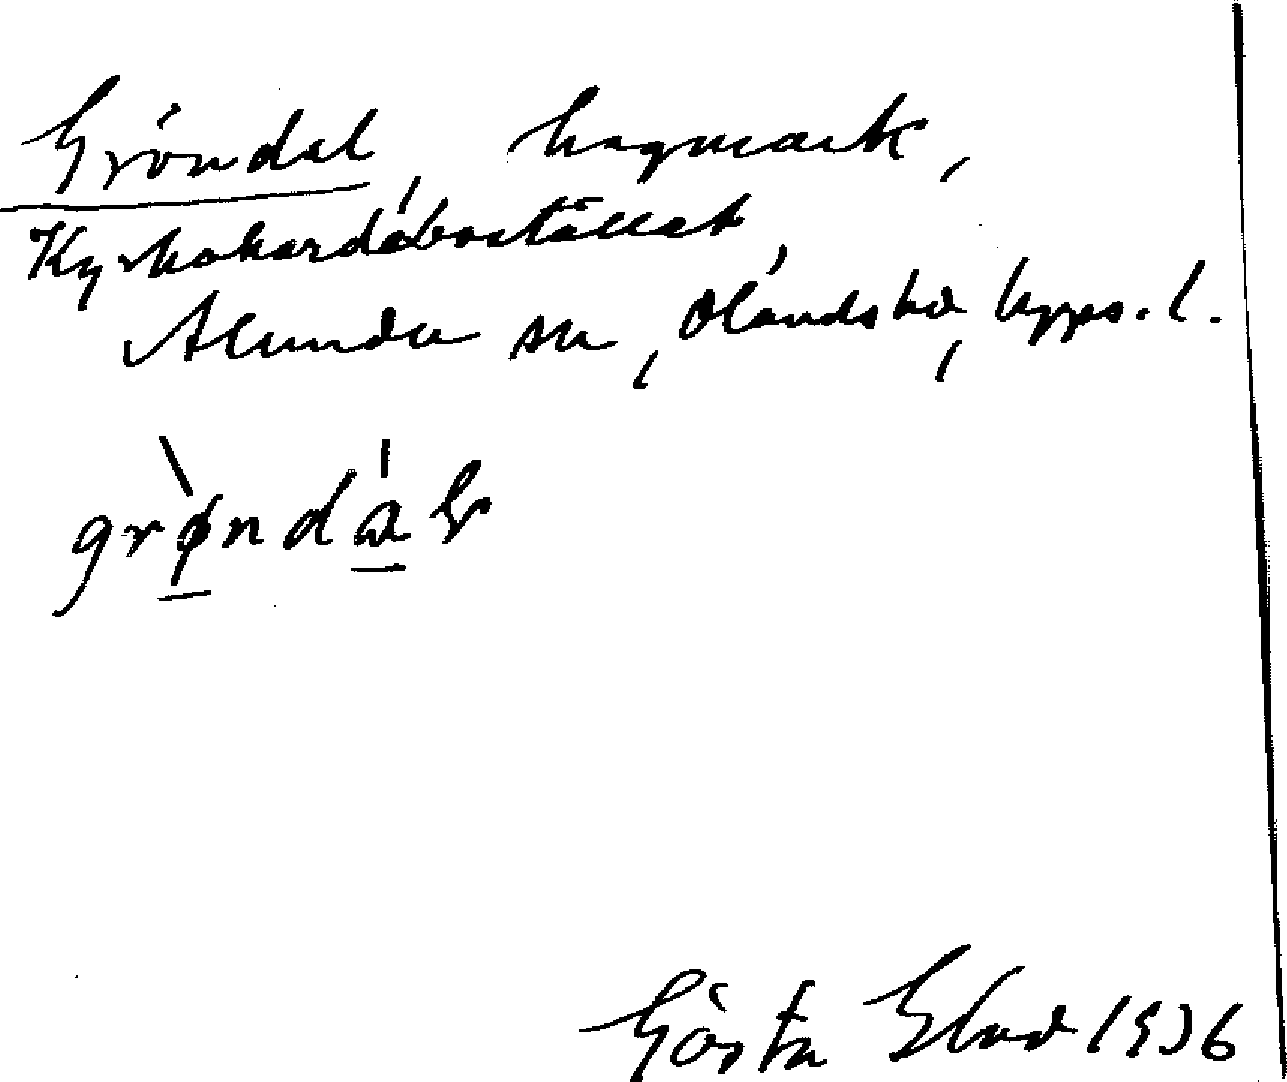 Gröndal, hagmark,
Kyrkoherdebostället,
Alunda sn, Olands hd, Upps. l.
grøndal
Gösta 1936